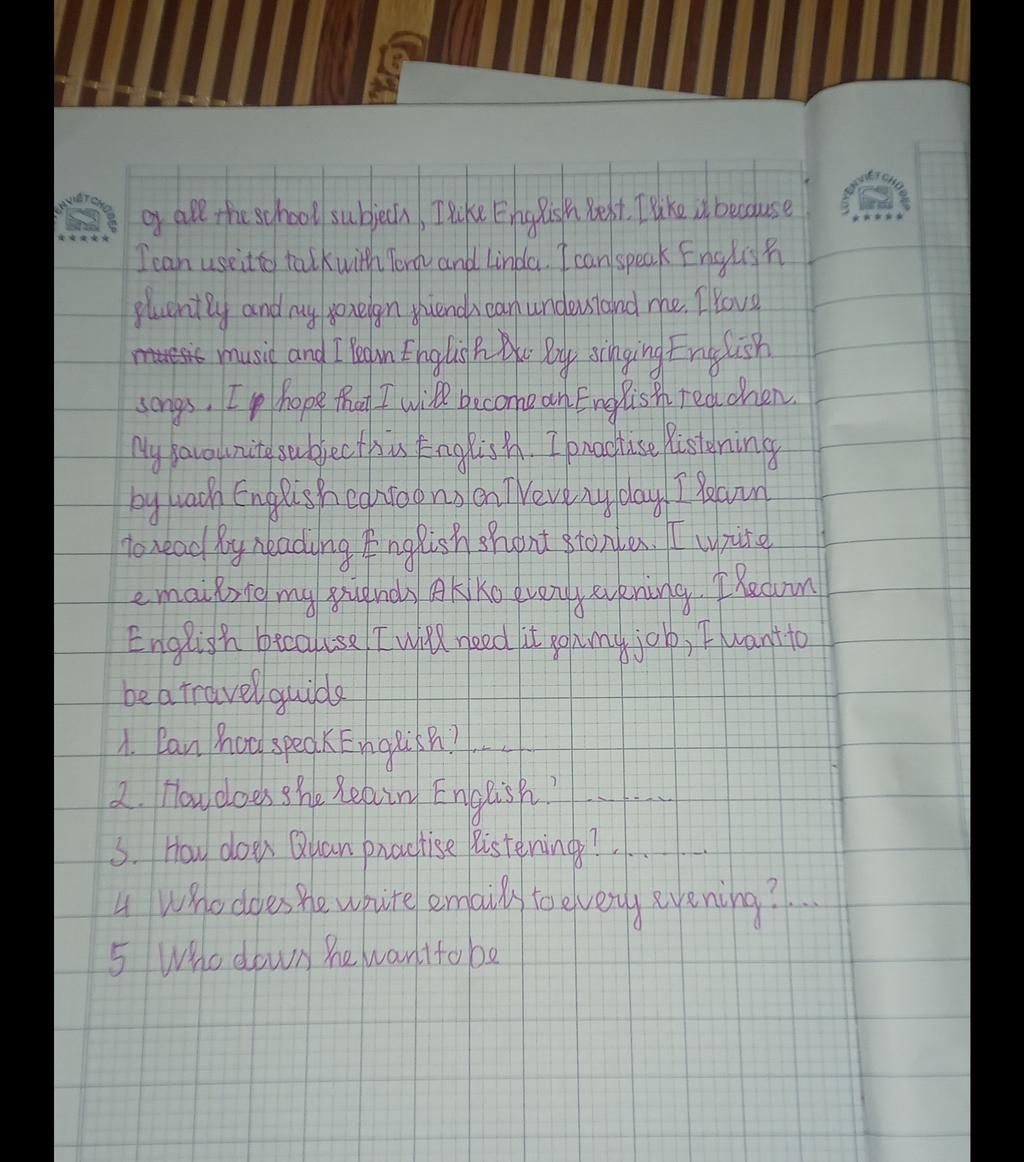 of all the school subjects, I like English best. I like it because
I can use it to talk with Tom and Linda. I can speak English
fluently and my foreign friends can understand me. I love
music music and I learn English by singing English
songs. I hope that I will become an English teacher.
My favourite subjects is English. I practise listening
by wach English cartoons on TV every day. I learn
to read by reading English short stories. I write
emails to my friends AKiKo every evening. I learn
English because I will need it for my job, I want to
be a travel guide
1. Can hoa speak English? ....
2. How does she learn English? .......
3. How does Quan practise listening? .......
4 Who does he write emails to every evening? ...
5 Who he want to be
LUYỆN VIẾT CHỮ ĐẸP